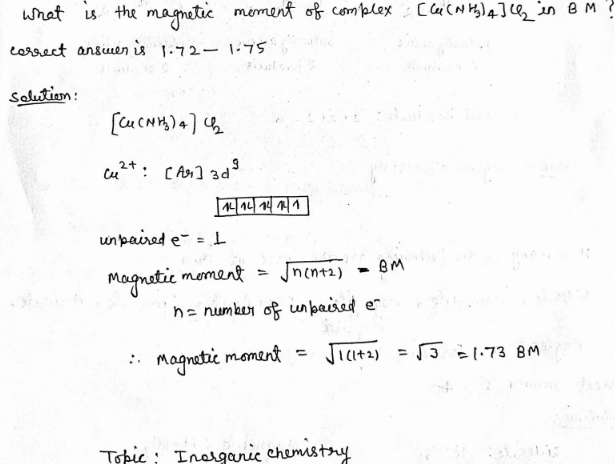 What is the magnetic moment of complex : [Cu(NH3)4]Cl2 in B M ?
correct answer is 1.72 – 1.75
Solution:
[Cu(NH3)4] Cl2
Cu2+ : [Ar] 3d9
⥮ ⥮ ⥮ ⥮ ↑
unpaired e- = 1
Magnetic moment = √n(n+2) = BM
n = number of unpaired e-
∴ Magnetic moment = √1(1+2) = √3 = 1.73 BM
Topic : Inorganic chemistry